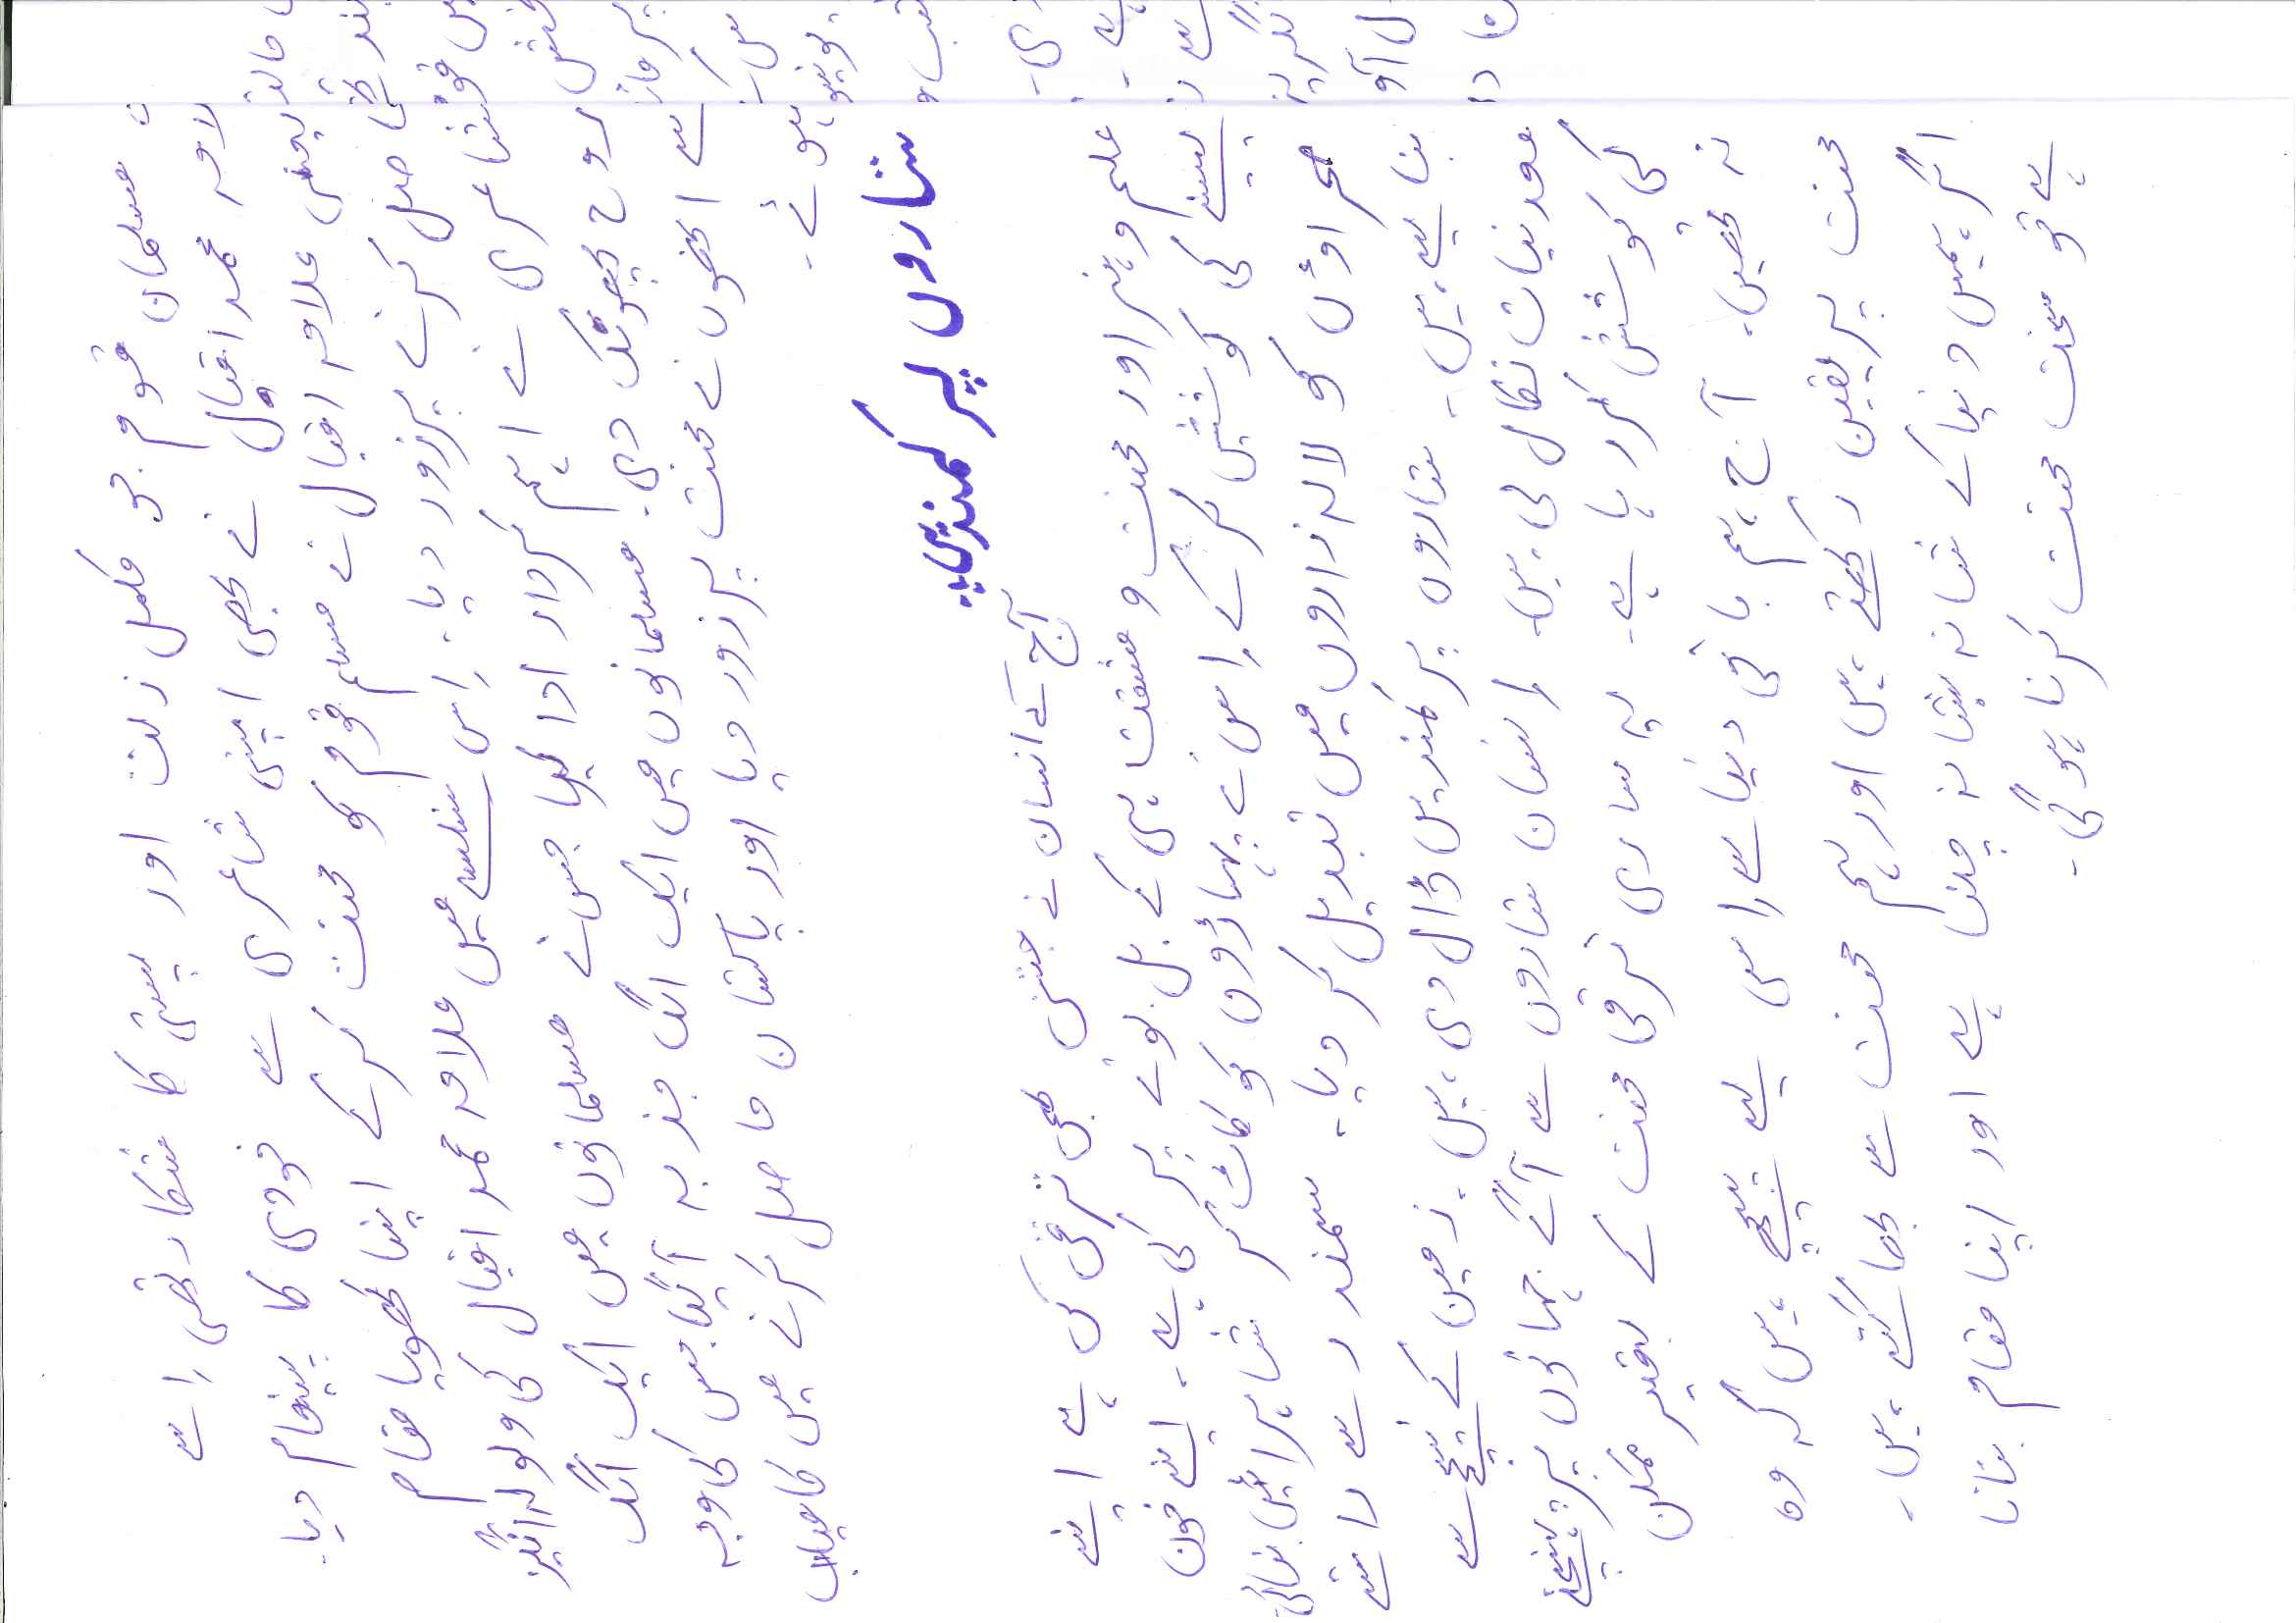 مسلمان قوم جو مکمل زلت اور پستی کا شکار تھی اِسے
لامہ محمد اقبال نے بھی اپنی شاعری سے خودی کا پیغام دیا۔
یعنی علامہ اقبال نے مسلم قوم کو محنت کرکے اپنا کھویا مقام
حاصل کرنے پر زور دیا۔ اِس سلسلے میں علامہ محمد اقبال کی ولولہ انگیز
شاعری نے اہم کردار ادا کیا جس نے مسلمانوں میں ایک الگ
روح پھونک دی۔ مسلمانوں میں ایک الگ جذبہ آگیا جس کی وجہ
سے انھوں نے محنت پر زور دیا اور پاکستان حاصل کرنے میں کامیاب
ہوئے۔
ستاروں پر کمندیں:۔
آج کے انسان نے جتنی بھی ترقی کی ہے اپنے
علم و ہنر اور محنت و مشقت ہی کے بل بوتے پر کی ہے۔ اپنے خون
پسینے کی کوشیش کرکے اِس نے پہاڑوں کو کاٹ کر شاہرائیں بنائی
صحراؤں کو لالہ زاروں میں تبدیل کر دیا۔ سمندر سے راستے
بنا لیے ہیں۔ ستاروں پر کمندیں ڈال دی ہیں۔ زمین کے نیچے سے
معدنیات نکال لی ہیں۔ اِنسان ستاروں سے آگے جہانوں پر پہنچنے
کی کوشش کر رہا ہے۔ یہ ساری ترقی محنت کے بغیر ممکن
نہ تھیں۔ آج ہم باقی دنیا سے اِسی لیے پیچھے ہیں کہ وہ
محنت پر یقین رکھتے ہیں اور ہم محنت سے بھاگتے ہیں۔
اگر ہمیں دنیا کے شانہ بشانہ چلنا ہے اور اپنا مقام بنانا
ہے تو سخت محنت کرنا ہوگی۔